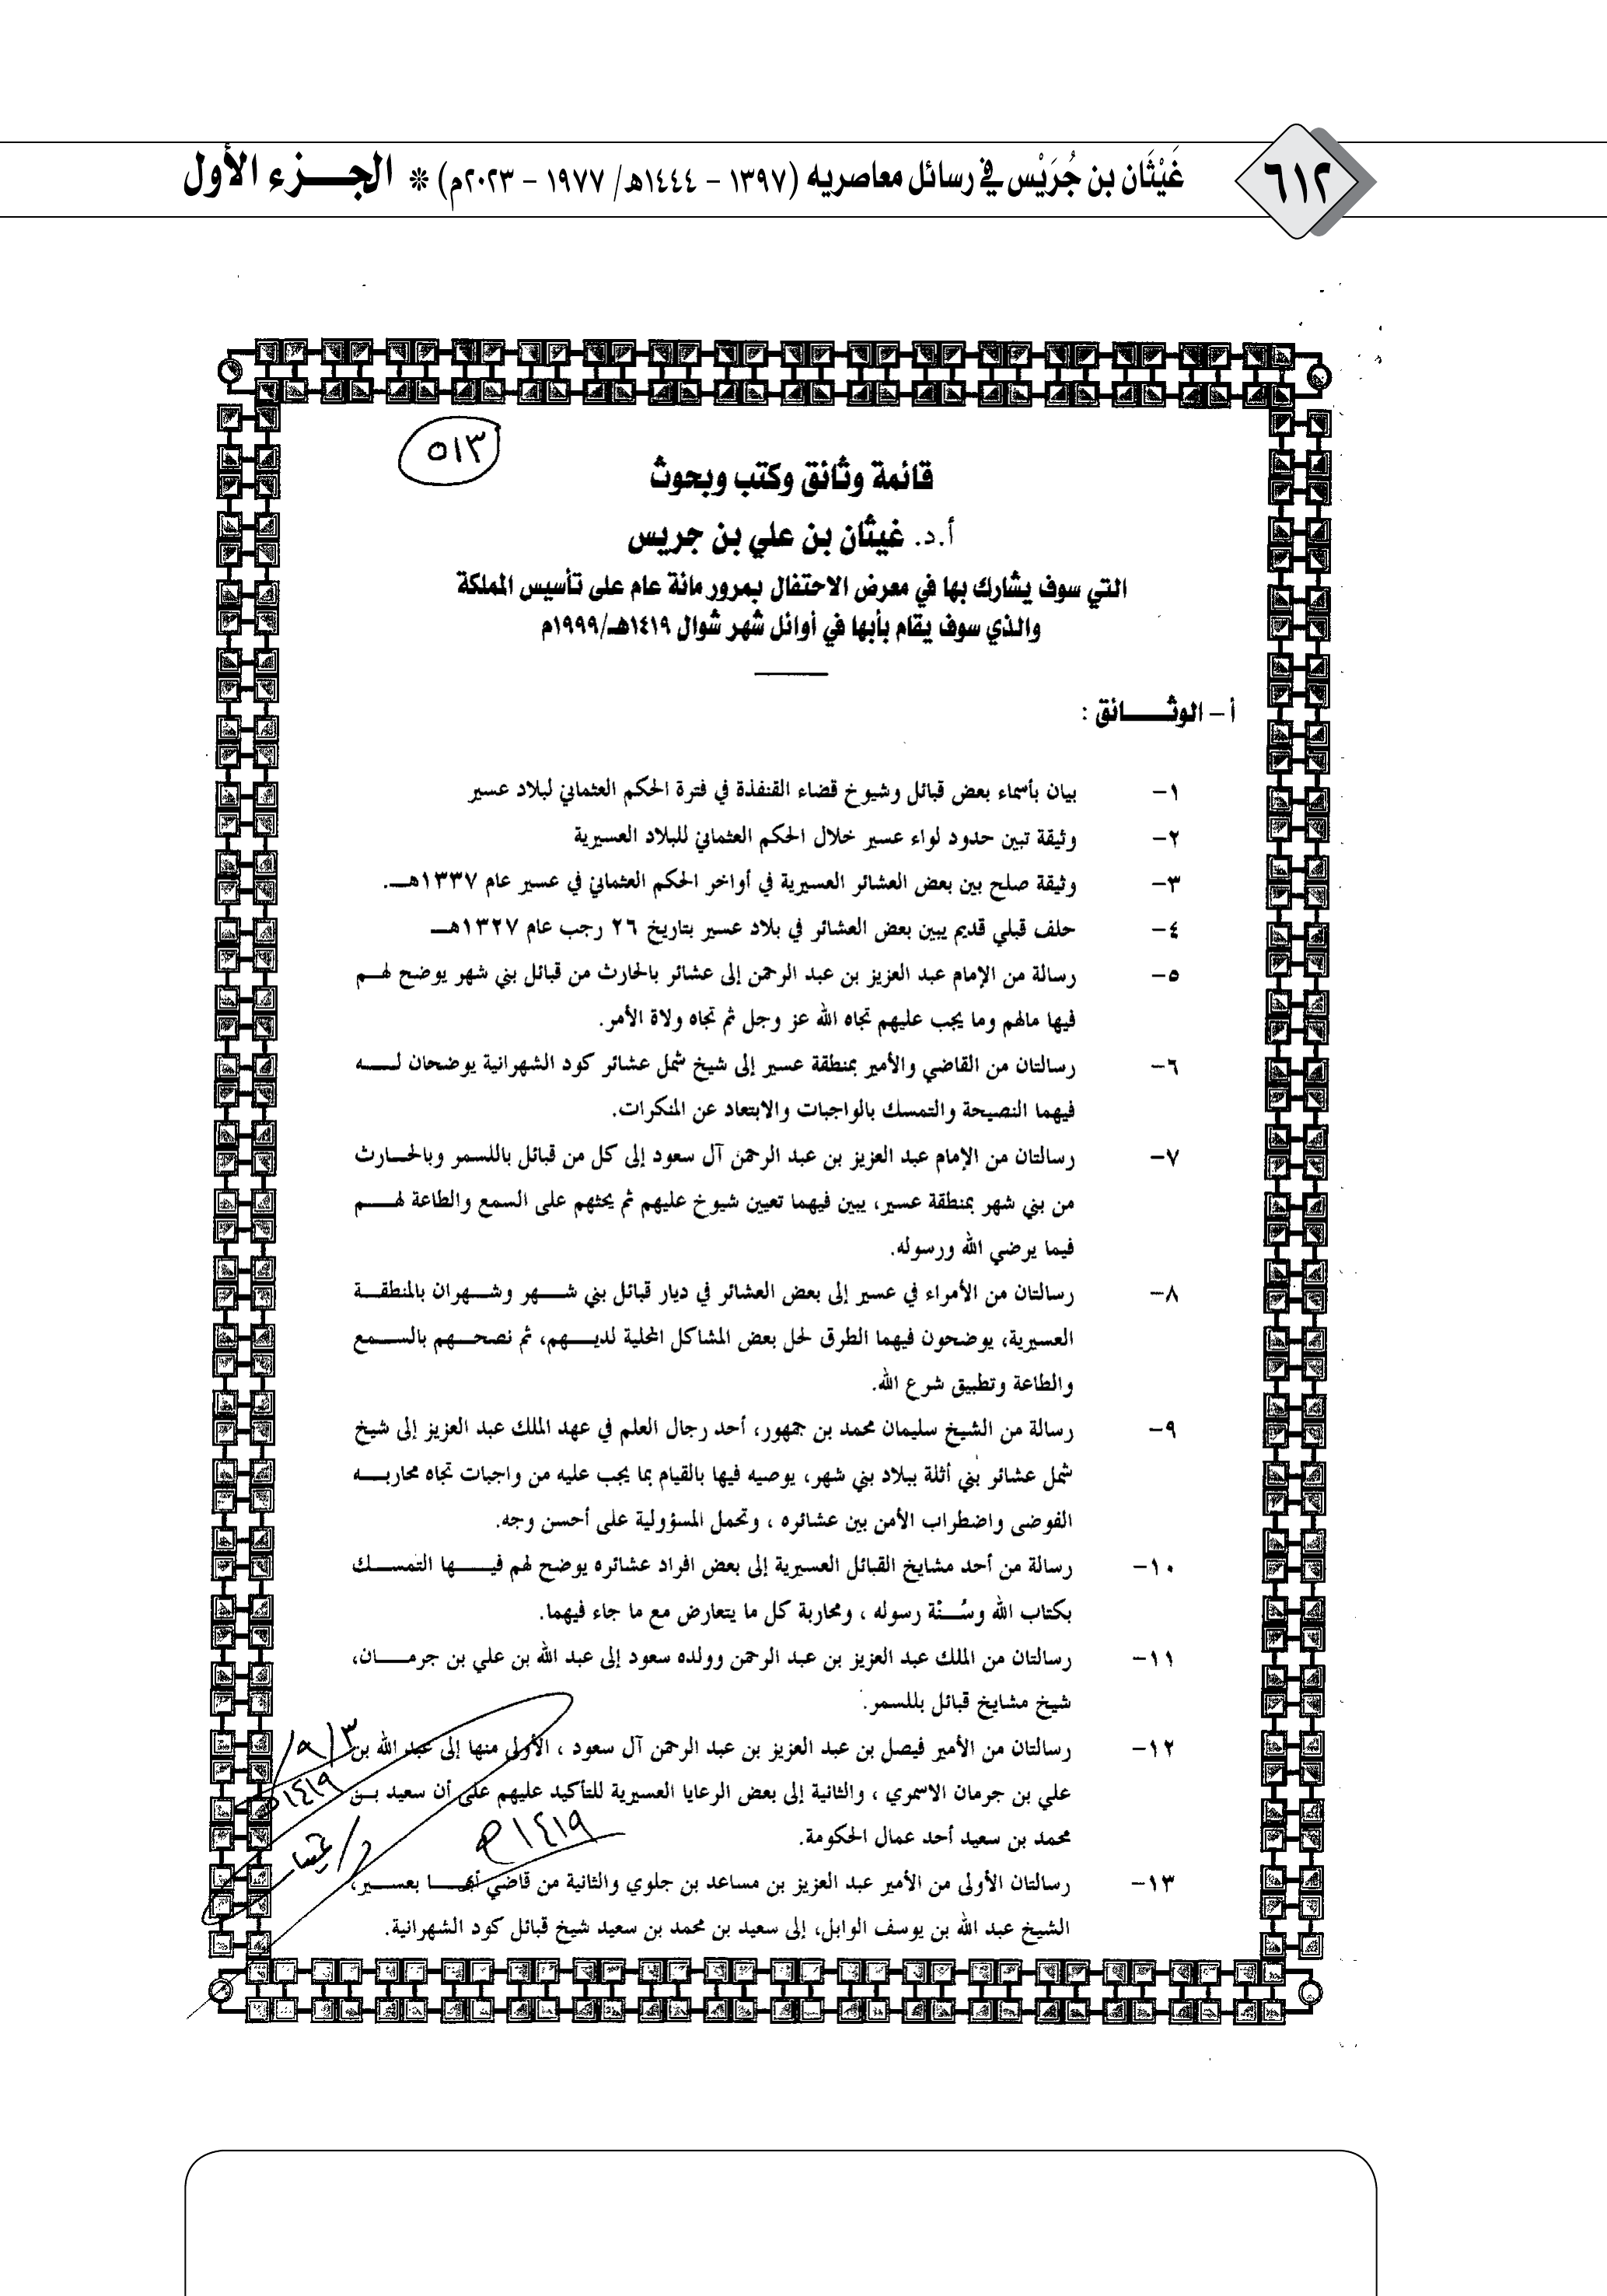 ٦١٢
غَيْثَان بن جُرَيْس في رسائل معاصريه (١٣٩٧ – ١٤٤٤هـ/ ١٩٧٧ – ٢٠٢٣م) * الجـــزء الأول
٥١٣
قائمة وثائق وكتب وبحوث
أ.د. غيثان بن علي بن جريس
التي سوف يشارك بها في معرض الاحتفال بمرور مائة عام على تأسيس المملكة
والذي سوف يقام بأبها في أوائل شهر شوال ١٤١٩هـ/١٩٩٩م
أ – الوثـــــائق :
١- بيان بأسماء بعض قبائل وشيوخ قضاء القنفذة في فترة الحكم العثماني لبلاد عسير
٢- وثيقة تبين حدود لواء عسير خلال الحكم العثماني للبلاد العسيرية
٣- وثيقة صلح بين بعض العشائر العسيرية في أواخر الحكم العثماني في عسير عام ١٣٣٧هـ.
٤- حلف قبلي قديم يبين بعض العشائر في بلاد عسير بتاريخ ٢٦ رجب عام ١٣٢٧هـ
٥- رسالة من الإمام عبد العزيز بن عبد الرحمن إلى عشائر بالحارث من قبائل بني شهر يوضح لهـم
فيها مالهم وما يجب عليهم تجاه الله عز وجل ثم تجاه ولاة الأمر.
٦- رسالتان من القاضي والأمير بمنطقة عسير إلى شيخ شمل عشائر كود الشهرانية يوضحان لـــه
فيهما النصيحة والتمسك بالواجبات والابتعاد عن المنكرات.
٧- رسالتان من الإمام عبد العزيز بن عبد الرحمن آل سعود إلى كل من قبائل باللسمر وبالحـارث
من بني شهر بمنطقة عسير، يبين فيهما تعيين شيوخ عليهم ثم يحثهم على السمع والطاعة لهـــم
فيما يرضي الله ورسوله.
٨- رسالتان من الأمراء في عسير إلى بعض العشائر في ديار قبائل بني شـــهر وشــهران بالمنطقــة
العسيرية، يوضحون فيهما الطرق لحل بعض المشاكل المحلية لديـــهم، ثم نصحـــهم بالســـمع
والطاعة وتطبيق شرع الله.
٩- رسالة من الشيخ سليمان محمد بن جمهور، أحد رجال العلم في عهد الملك عبد العزيز إلى شيخ
شمل عشائر بني أثلة ببلاد بني شهر، يوصيه فيها بالقيام بما يجب عليه من واجبات تجاه محاربـــه
الفوضى واضطراب الأمن بين عشائره ، وتحمل المسؤولية على أحسن وجه.
١٠- رسالة من أحد مشايخ القبائل العسيرية إلى بعض افراد عشائره يوضح لهم فيـــها التمســـك
بكتاب الله وسُـــنّة رسوله ، ومحاربة كل ما يتعارض مع ما جاء فيهما.
١١- رسالتان من الملك عبد العزيز بن عبد الرحمن وولده سعود إلى عبد الله بن علي بن جرمـــان،
شيخ مشايخ قبائل بللسمر.
١٢- رسالتان من الأمير فيصل بن عبد العزيز بن عبد الرحمن آل سعود ، الأولى منها إلى عبد الله بن
علي بن جرمان الاسمري ، والثانية إلى بعض الرعايا العسيرية للتأكيد عليهم على أن سعيد بــن
محمد بن سعيد أحد عمال الحكومة.
١٣- رسالتان الأولى من الأمير عبد العزيز بن مساعد بن جلوي والثانية من قاضي أبهـــا بعســـير،
الشيخ عبد الله بن يوسف الوابل، إلى سعيد بن محمد بن سعيد شيخ قبائل كود الشهرانية.
٣/٩/
١٤١٩هـ
١٤١٩هـ